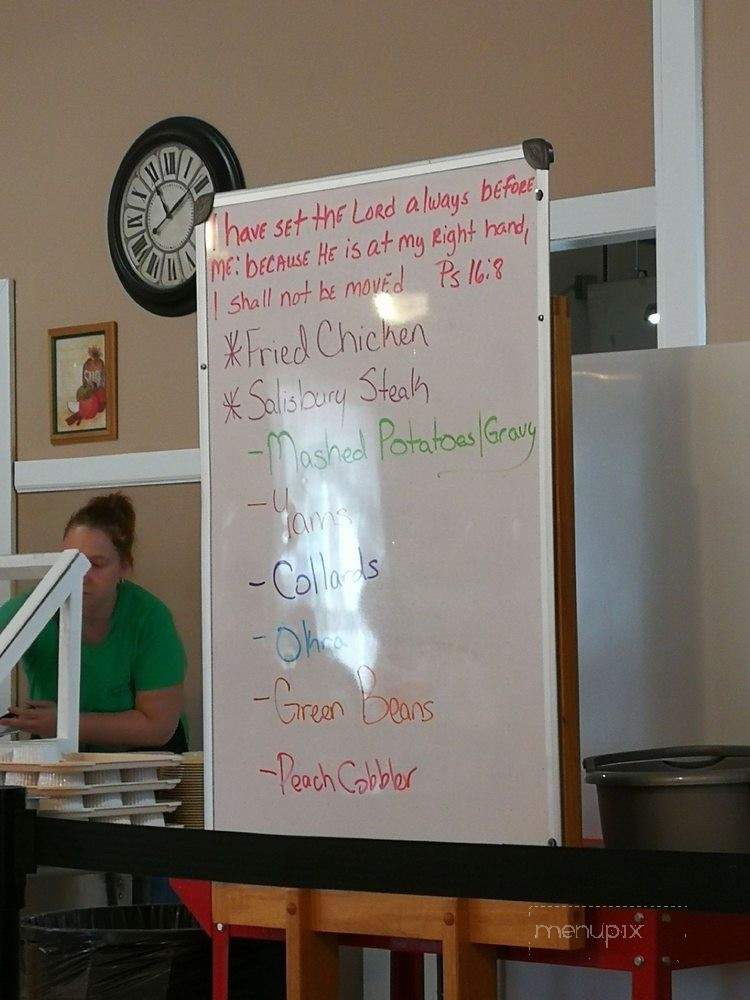 I have set the Lord always before
me: because He is at my Right hand,
I shall not be moved Ps 16:8
*Fried Chicken
*Salisbury Steak
-Mashed Potatoes/Gravy
-Yams
-Collards
-Okra
-Green Beans
-Peach Cobbler
menupix